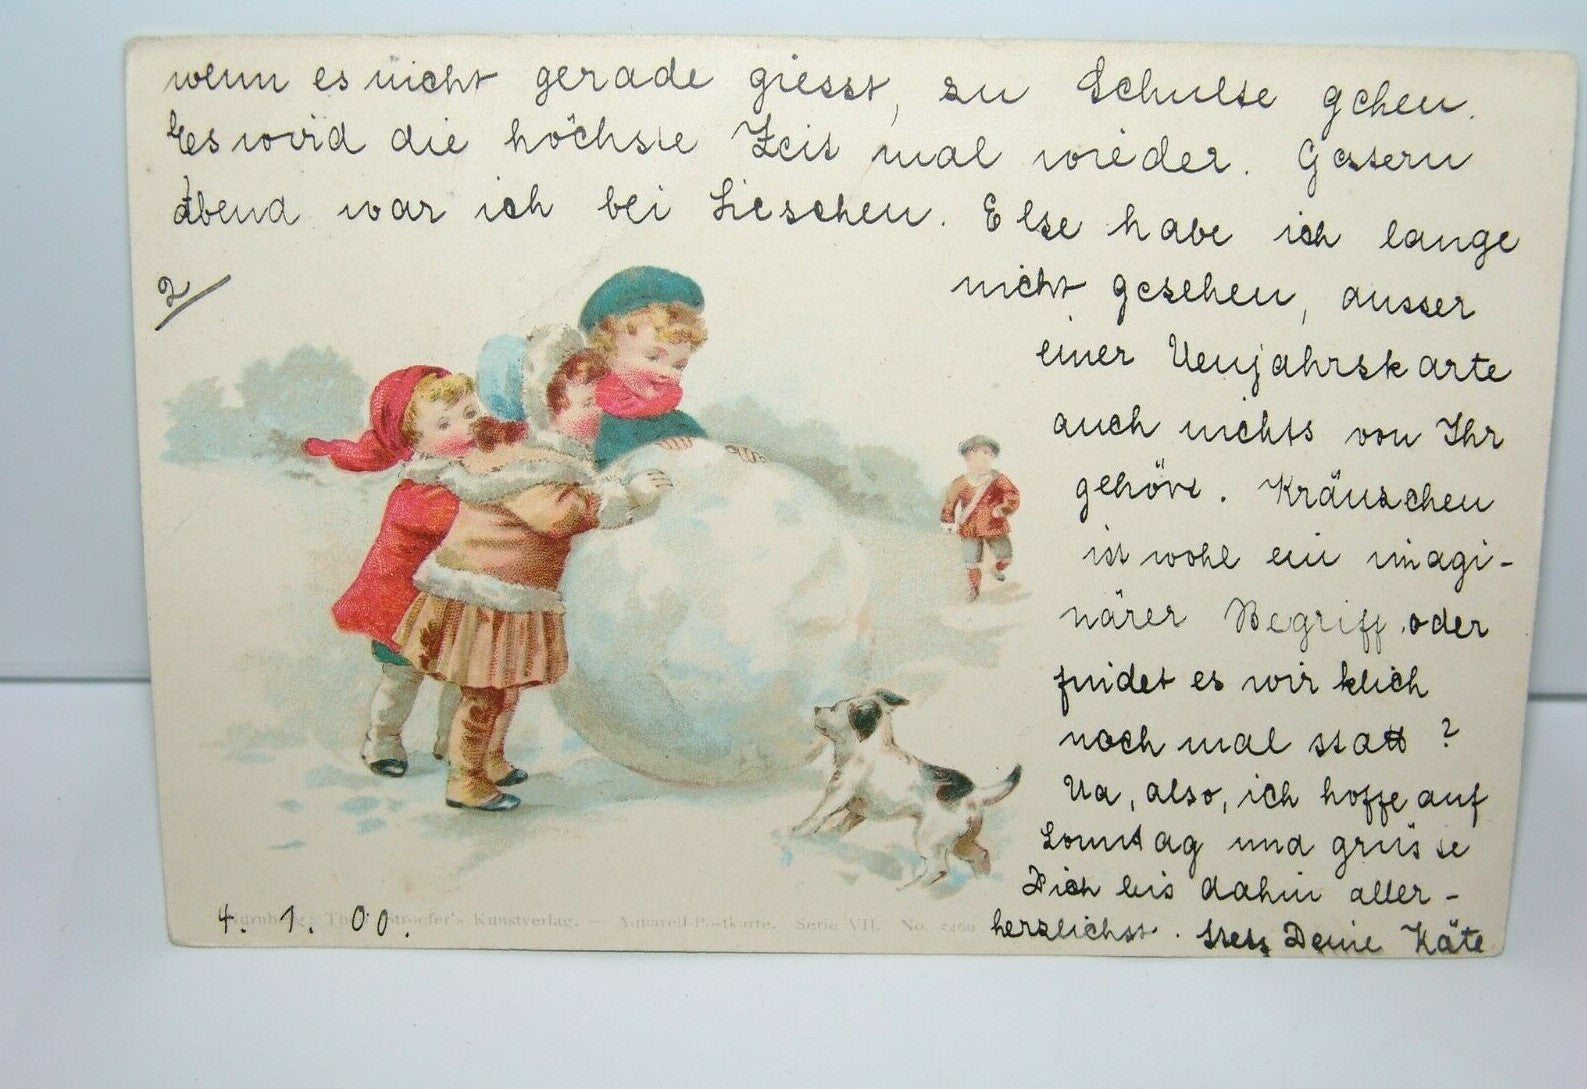 wenn es nicht gerade giesst, zu Schulse gehen.
Es wird die höchste Zeit mal wieder. Gestern
Abend war ich bei Lieschen. Else habe ich lange
2/
nicht gesehen, ausser
einer Neujahrskarte
auch nichts von Ihr
gehört. Kränzchen
ist wohl ein imagi-
närer Begriff oder
findet es wirklich
noch mal statt?
Na, also, ich hoffe auf
Sonntag und grüsse
Dich bis dahin aller-
herzlichst. Stets Deine Käte
4. 1. 00.
Nürnberg: Theo. Stroefer's Kunstverlag. — Aquarell-Postkarte. Serie VII. No.